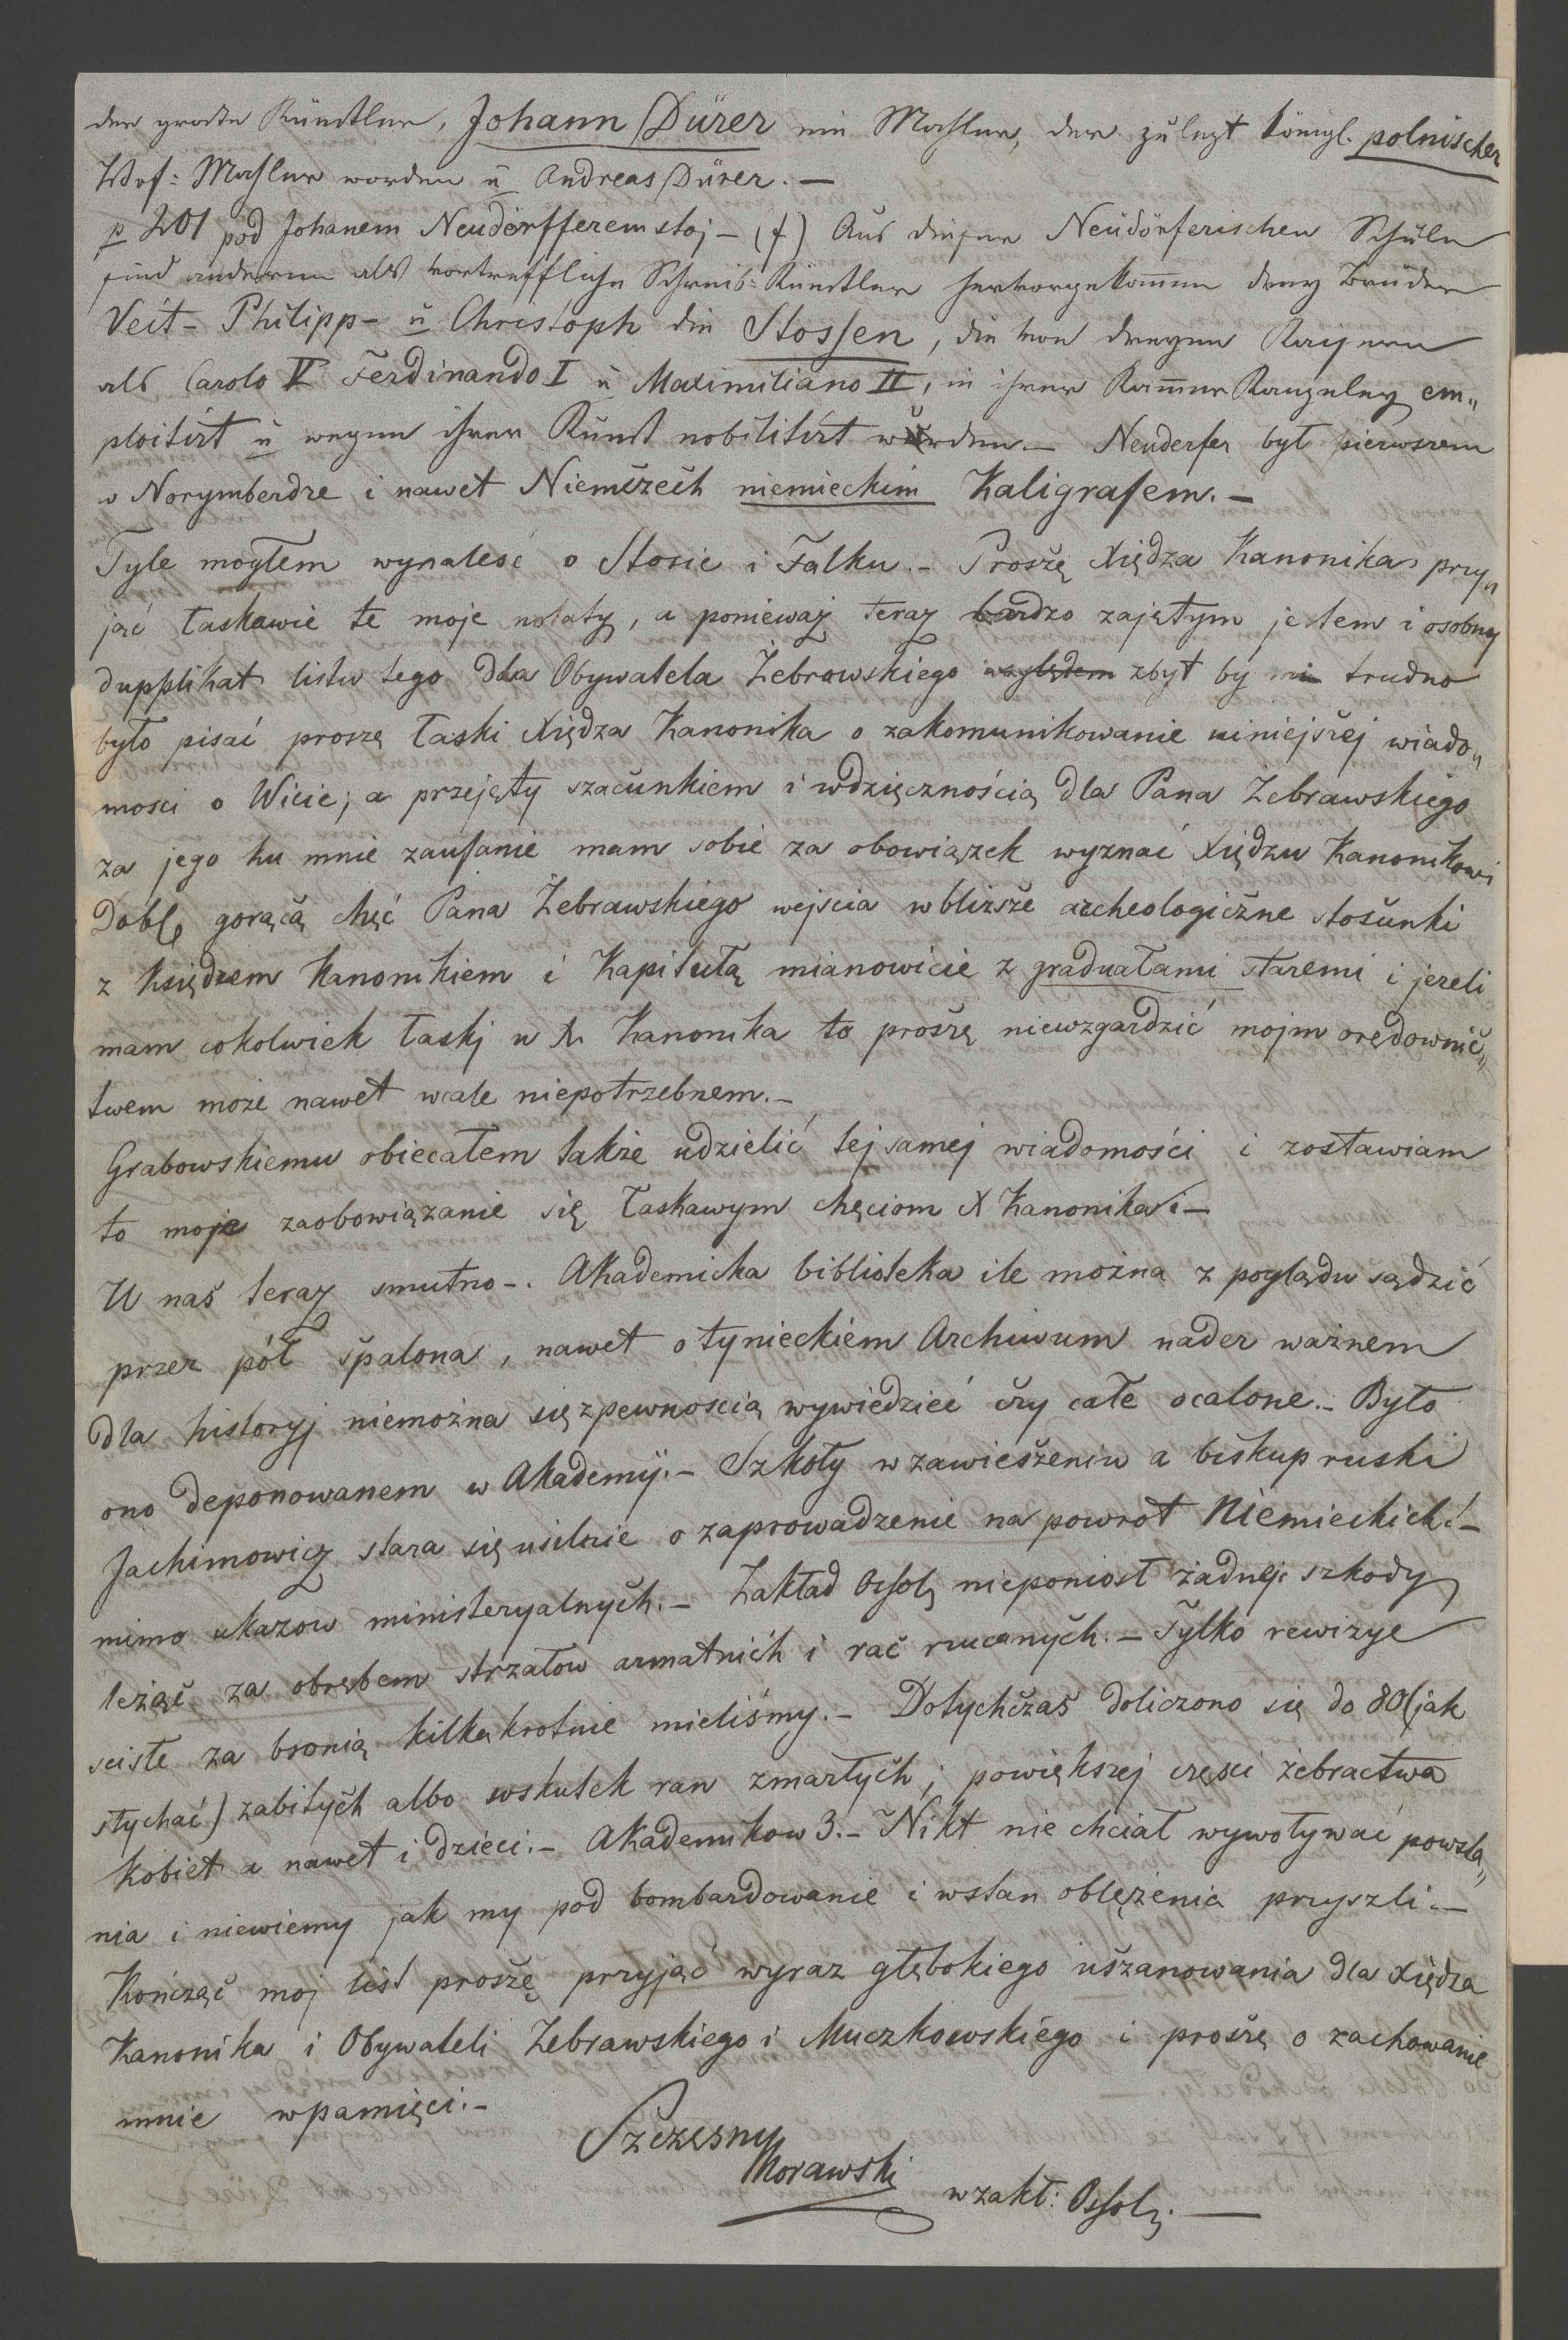 der groste Künstler, Johann Dürer ein Mahler, der zulezt königl. polnischer
Hof= Mahler worden u Andreas Dürer. —
p 201 pod Johanem Neudörfferem stoj — (f) Aus dieser Neüdörferischen Schule
sind anderen als vortreffliche Schreib= Künstler hervorgekom̄en drey Brüder
Veit- Philipp- u Christoph die Stossen, die von dreyen Kaysern
als Carolo V Ferdinando I u Maximiliano II, in ihrer Kam̄er Kanzeley em„
ploitirt u wegen ihrer Kunst nobilitirt wurden. — Neuderfer był pierwszem
w Norymberdze i nawet Niemczech niemieckim Kaligrafem. —
Tyle mogłem wynalesć o Stosie i Falku. — Proszę Xiędza Kanonika przy„
jąć łaskawie te moje notaty, a ponieważ teraz bardzo zajętym jestem i osobny
dupplikat listu tego dla Obywatela Żebrawskiego względem zbyt by mi trudno
było pisać proszę łaski Xiędza Kanonika o zakomunikowanie niniejszej wiado„
mosci o Wicie; a przejęty szacunkiem i wdzięcznością dla Pana Żebrawskiego
za jego ku mnie zaufanie mam sobie za obowiązek wyznać Xiędzu Kanonikowi
Dobr gorącą chęć Pana Żebrawskiego wejscia w bliższe archeologiczne stosunki
z Księdzem Kanonikiem i Kapitułą mianowicie z graduałami staremi i jezeli
mam cokolwiek łaskj u X. Kanonika to proszę niewzgardzić mojm orędownic„
twem może nawet wcale niepotrzebnem. —
Grabowskiemu obiecałem także udzielić tej samej wiadomości i zostawiam
to moje zaobowiązanie się łaskawym chęciom X Kanonika. —
U nas teraz smutno —. Akademicka biblioteka ile można z poglądu sądzić
przez pół spalona, nawet o tynieckiem Archiwum nader ważnem
dla historyj niemożna się z pewnoscią wywiedzieć czy całe ocalone. — Było
ono deponowanem w Akademij. — Szkoły w zawieszeniu a biskup ruski
Jachimowicz stara się usilnie o zaprowadzenie na powrot Niemieckich! —
mimo ukazow ministeryalnych. — Zakład Ossol. nieponiosł żadnej szkody
leżąc za obrębem strzałow armatnich i rac rzucanych. — Tylko rewizye
scisłe za bronią kilkakrotnie mieliśmy. — Dotychczas doliczono się do 80 (jak
słychać) zabitych albo wskutek ran zmarłych; powiększej częsci żebractwa
kobiet a nawet i dzieci. — Akademikow 3. — Nikt nie chciał wywoływać powsta„
nia i niewiemy jak my pod bombardowanie i w stan oblężenia przyszli. —
Kończąc moj list proszę przyjąć wyraz głębokiego uszanowania dla Xiędza
Kanonika i Obywateli Żebrawskiego i Muczkowskiego i proszę o zachowanie
mnie w pamięci. —
Szczęsny
Morawski
w zakł: Ossol. —